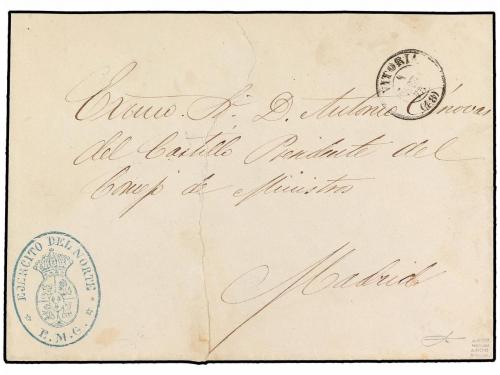 VITORIA
(48)
Excmo. Sr. D. Antonio Cánovas
del Castillo Presidente del
Consejo de Ministros
Madrid
EJERCITO DEL NORTE
E. M. G.